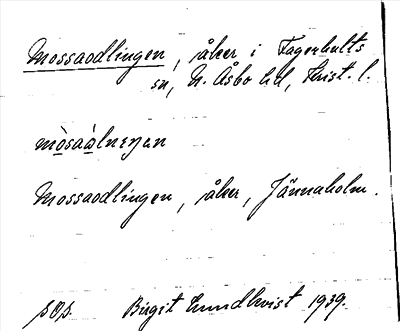 Mossaodlingen, åker i Fagerhults
sn, N. Åsbo hd, Krist. l.
mòsaàlnıŋən
Mossaodlingen, åker, Jännaholm.
Birgit Lundkvist 1939.